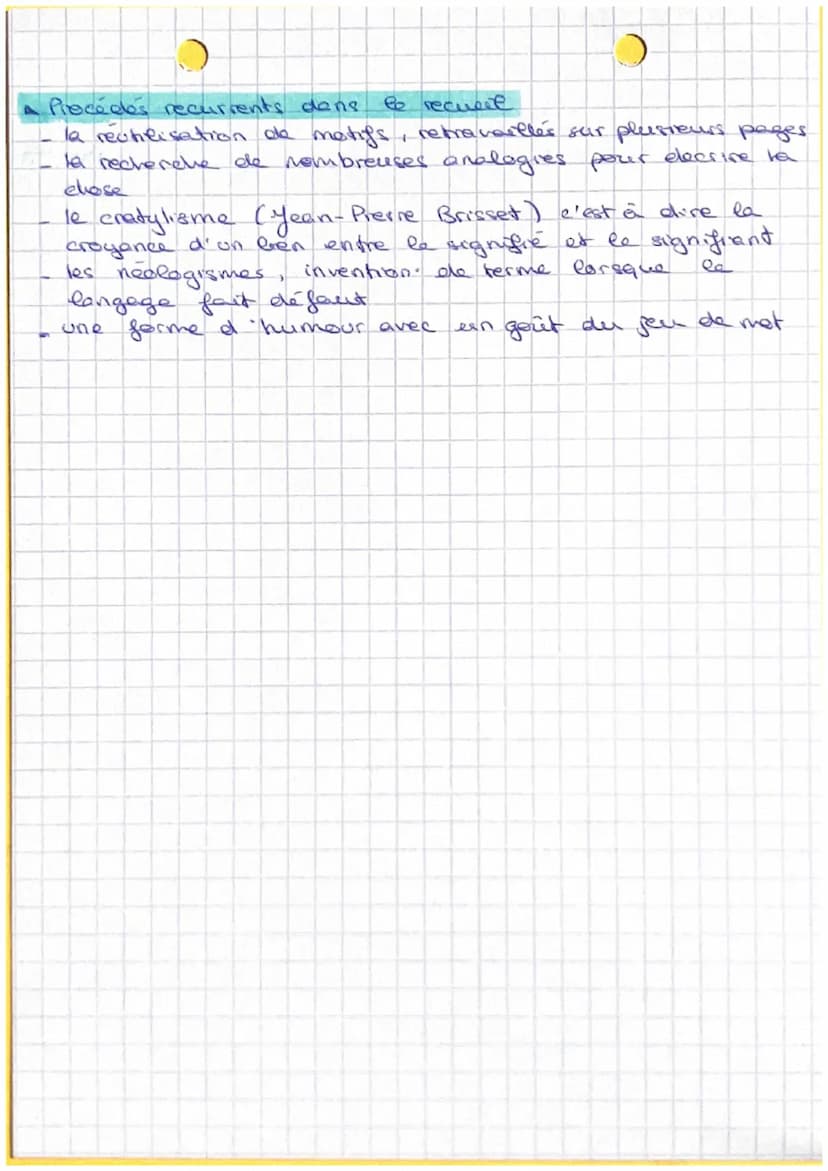 Procédés recurrents dans le recueil
- la réutilisation de motifs, retravaillés sur plusieurs pages
- la recherche de nombreuses analogies pour decrire la
chose
- le cratylisme (Jean-Pierre Brisset) c'est à dire la
croyance d'un lien entre le signifié et le signifiant
- les néologismes, invention de terme lorsque le
langage fait défaut
- une forme d'humour avec un goût du jeu de mot